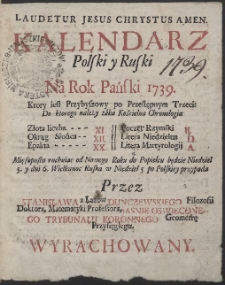 LAUDETUR JESUS CHRYSTUS AMEN.
KALENDARZ
Polski y Ruski
1739.
Na Rok Pański 1739.
Ktory iest Przybyszowy po Przestępnym Trzeci:
Do ktorego należy táka Kościelna Chronologia
Złota liczba. XI. Poczet Rzymski II.
Okrąg Słońca XII. Litera Niedzielna D.
Epakta XX. Litera Martyrologii A.
Mięsopustu rachuiąc od Nowego Roku do Popielcu będzie Niedziel
5. y dni 6. Wielkanoc Ruska w Niedziel 5 po Polskiey przypada
Przez
STANISŁAWA z Łazow DUNCZEWSKIEGO Filozofii
Doktora, Matematyki Professora, JASNIE OSWIECONE-
GO TRYBUNAŁU KORONNEGO Geometrę
Przysięgłego,
WYRACHOWANY.